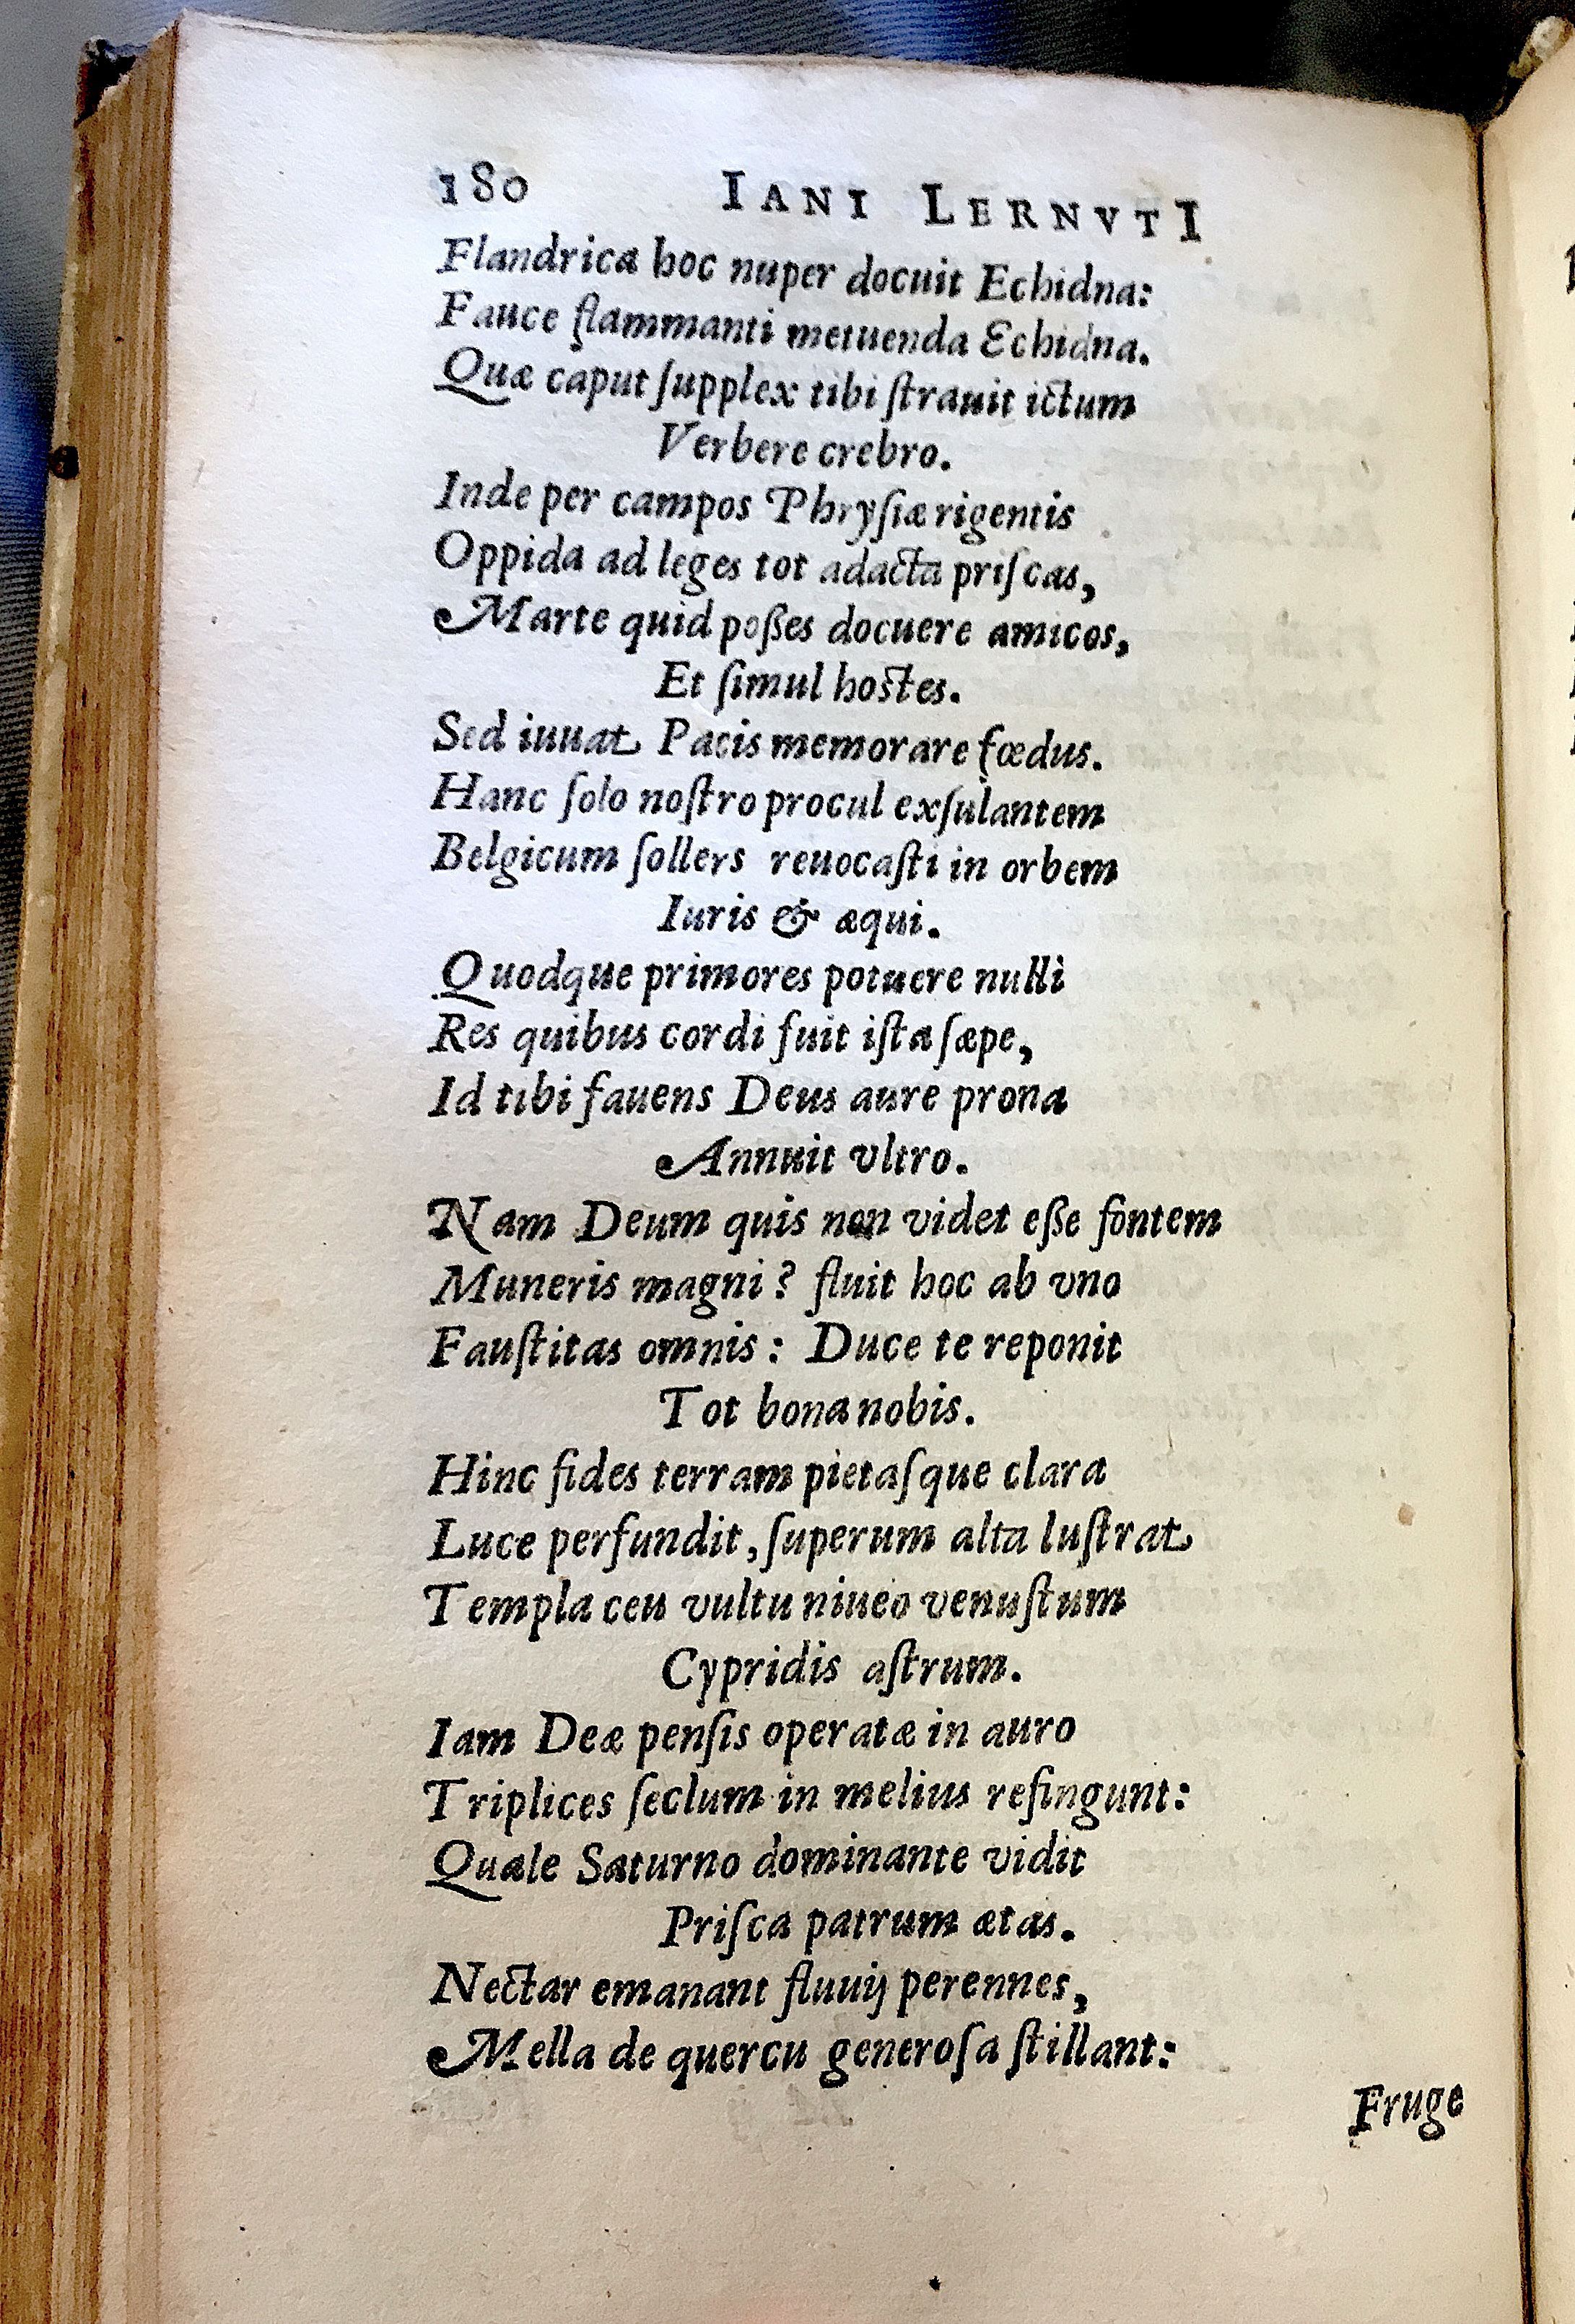 180 IANI LERNVTI
Flandrica hoc nuper docuit Echidna:
Fauce flammanti metuenda Echidna.
Quæ caput ſupplex tibi ſtrauit ictum
Verbere crebro.
Inde per campos Phryſiæ rigentis
Oppida ad leges tot adacta priſcas,
Marte quid poßes docuere amicos,
Et ſimul hoſtes.
Sed iuuat Pacis memorare fœdus.
Hanc ſolo noſtro procul exſulantem
Belgicum ſollers reuocaſti in orbem
Iuris & æqui.
Quodque primores potuere nulli
Res quibus cordi fuit iſta ſæpe,
Id tibi fauens Deus aure prona
Annuit vltro.
Nam Deum quis non videt eße fontem
Muneris magni? fluit hoc ab vno
Fauſtitas omnis: Duce te reponit
Tot bona nobis.
Hinc fides terram pietaſque clara
Luce perfundit, ſuperum alta luſtrat
Templa ceu vultu niueo venuſtum
Cypridis aſtrum.
Iam Deæ penſis operatæ in auro
Triplices ſeclum in melius refingunt:
Quale Saturno dominante vidit
Priſca patrum ætas.
Nectar emanant fluuij perennes,
Mella de quercu generoſa ſtillant:
Fruge